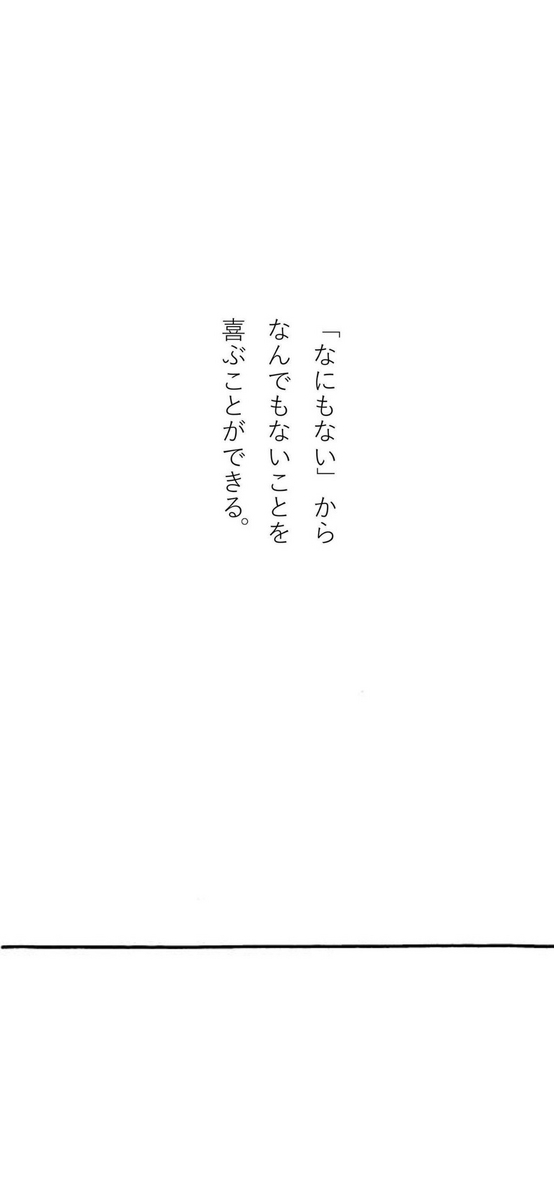 「なにもない」から
なんでもないことを
喜ぶことができる。